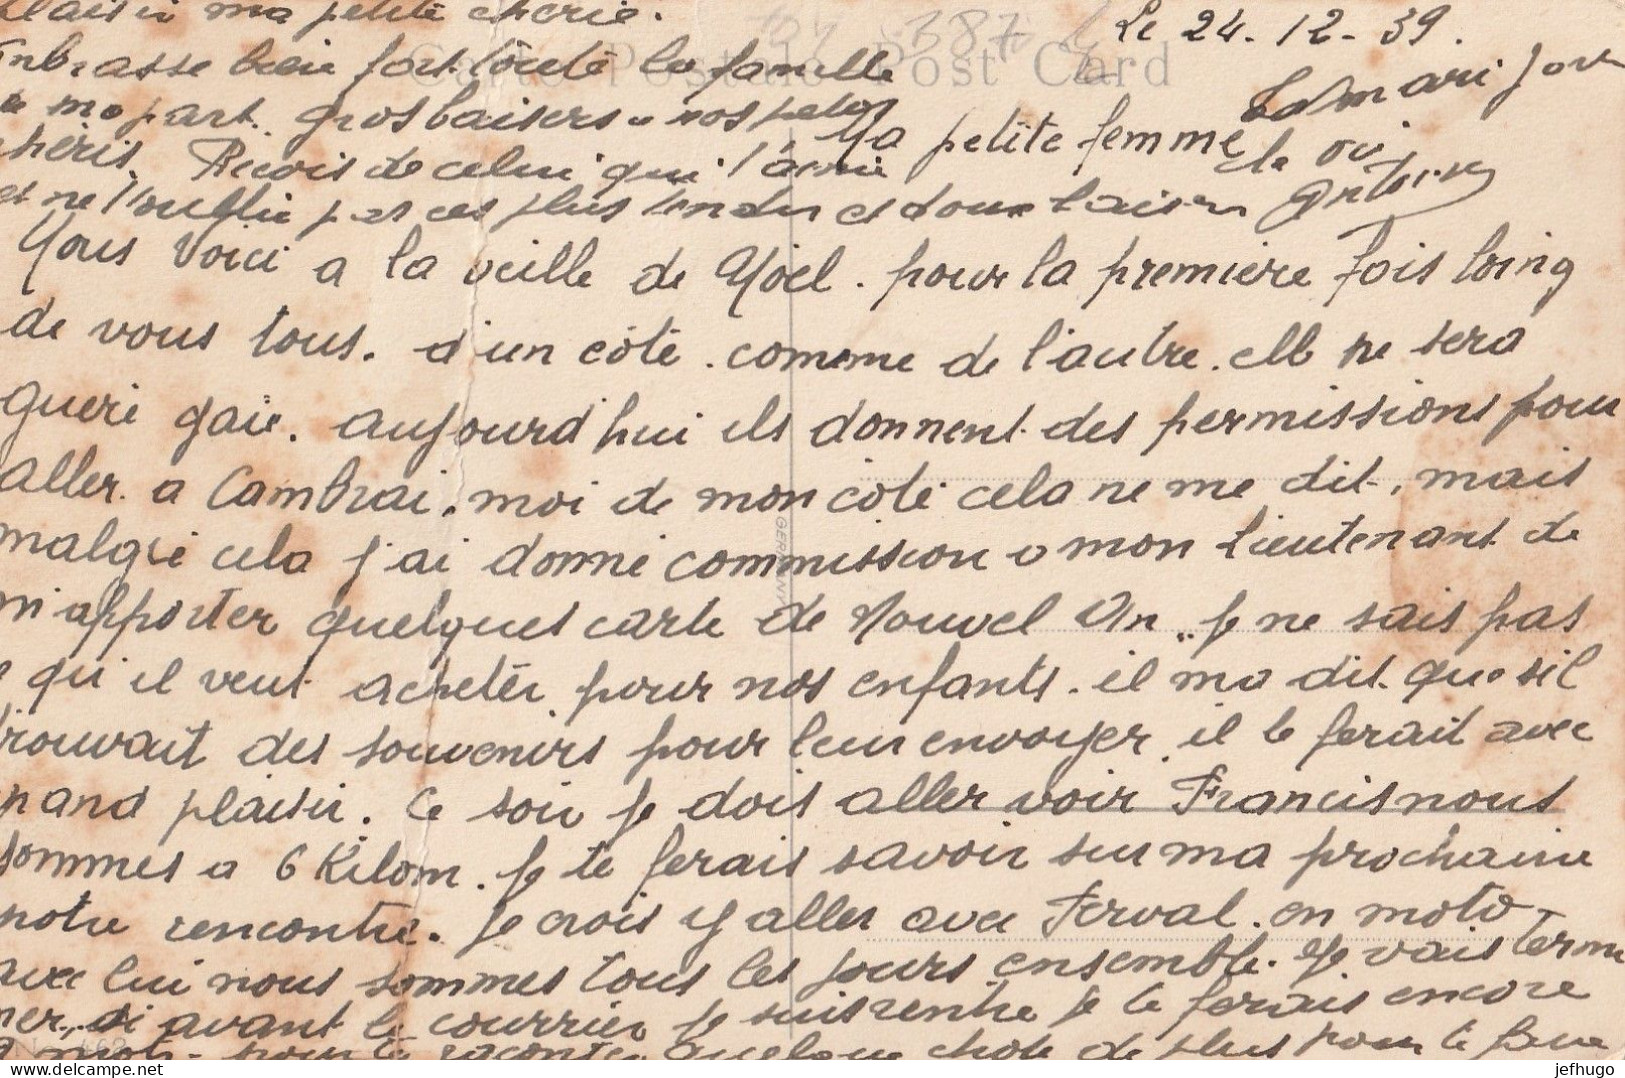 Le 24.-12-39.
Ma petite femme
Nous voici a la veille de Noël. pour la premiere fois loing
de vous tous. d'un côté. comme de l'autre. elle ne sera
gueri gaie. aujourd'hui ils donnent des permissions pour
aller a Cambrai. moi de mon côté cela ne me dit, mais
malgré cela j'ai donné commission a mon Lieutenant de
m'apporter quelques carte de Nouvel An.. je ne sais pas
qui il veut acheter pour nos enfants. il ma dit que sil
trouvait des souvenirs pour leur envoyer, il le ferait avec
grand plaisir. Ce soir je dois aller voir Francis nous
sommes a 6 Kilom. je te ferais savoir sur ma prochaine
notre rencontre. je crois y aller avec Forval. en moto
avec lui nous sommes tous les jours ensemble. Je vais termi
ner. si avant le courrier je suis rentre je te ferais encore
mots pour te raconter quelque chose de plus pour te faire
plaisir ma petite cherie.
Embrasse bien fort toute la famille
de ma part. gros baisers a nos petits
chéris. Recois de celui qui t'aime
et ne t'oublie pas ces plus tendres et doux baisers
Ton mari pour
la vie
Carte Postale Post Card
GERMANY
387